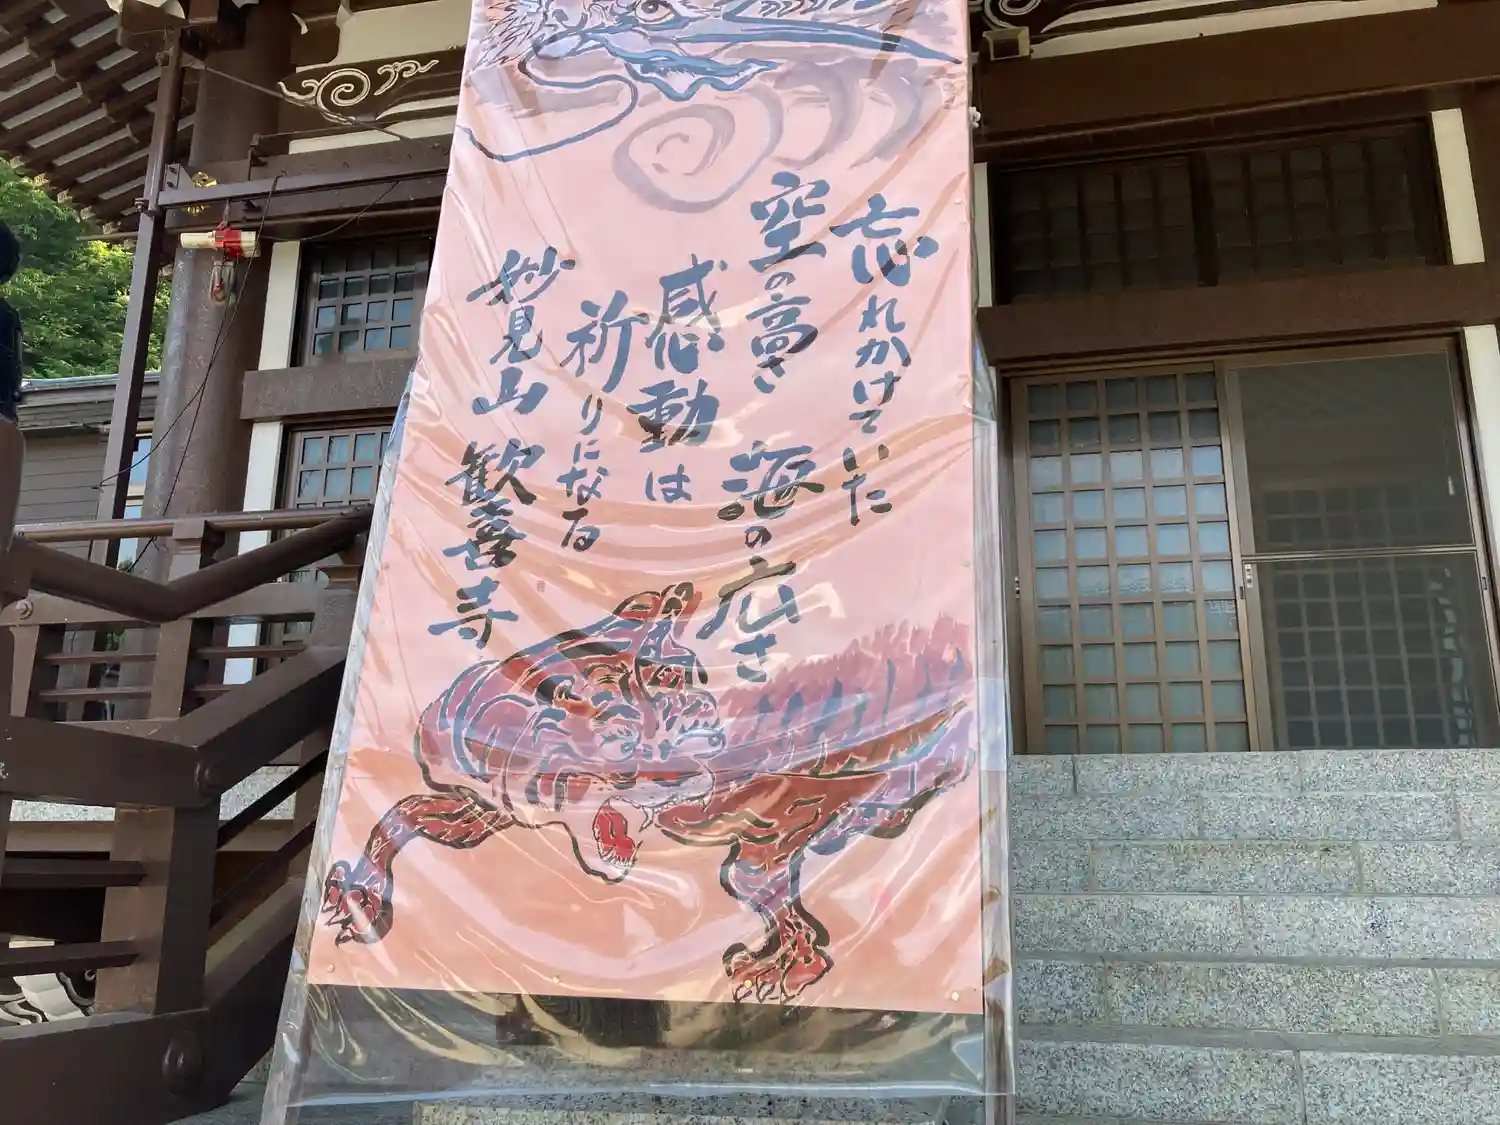 忘れかけていた
空の高さ
海の広さ
感動は
祈りになる
妙見山 歓喜寺